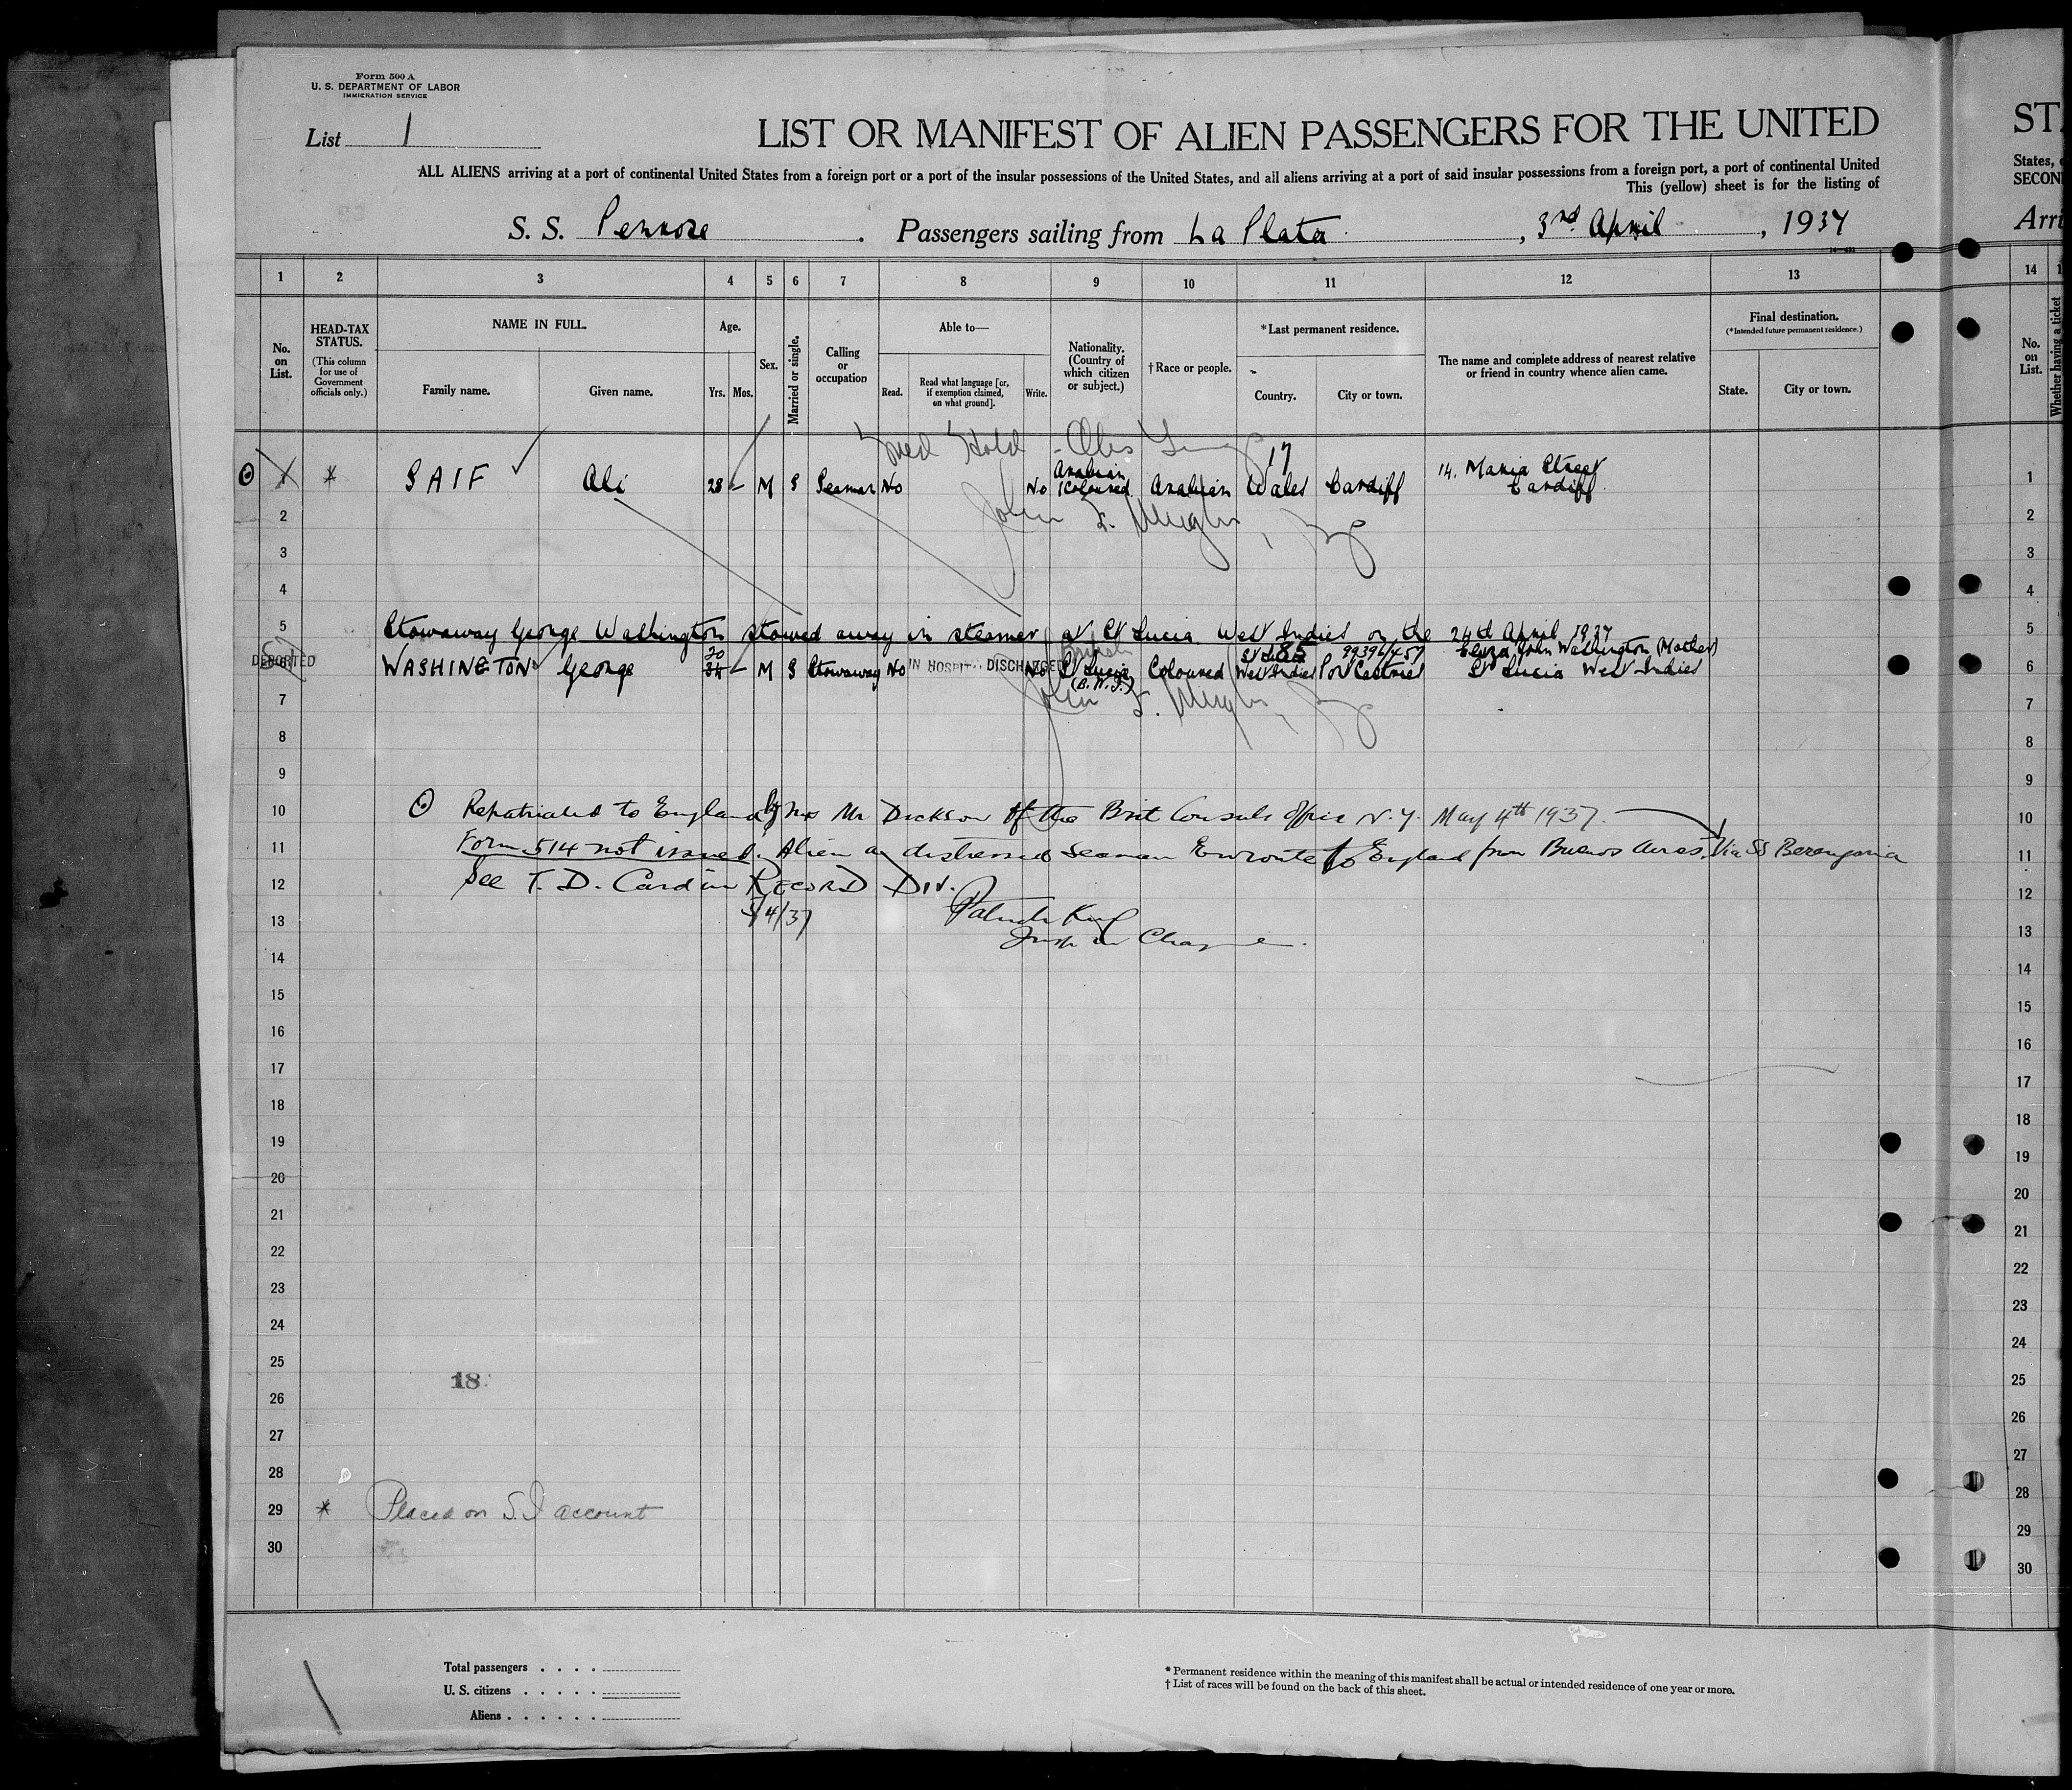 Form 500 A
U. S. DEPARTMENT OF LABOR
IMMIGRATION SERVICE
List 1
LIST OR MANIFEST OF ALIEN PASSENGERS FOR THE UNITED
ST
ALL ALIENS arriving at a port of continental United States from a foreign port or a port of the insular possessions of the United States, and all aliens arriving at a port of said insular possessions from a foreign port, a port of continental United
States,
This (yellow) sheet is for the listing of
SECON
S. S. Pennore. Passengers sailing from La Plata, 3rd April, 1937
Arri
1 2 3 4 5 6 7 8 9 10 11 12 13 14
No. on List.
HEAD-TAX STATUS.
(This column for use of Government officials only.)
NAME IN FULL.
Family name. Given name.
Age.
Yrs. Mos.
Sex.
Married or single.
Calling or occupation
Able to—
Read. Read what language [or, if exemption claimed, on what ground]. Write.
Nationality. (Country of which citizen or subject.)
†Race or people.
*Last permanent residence.
Country. City or town.
The name and complete address of nearest relative or friend in country whence alien came.
Final destination.
(*Intended future permanent residence.)
State. City or town.
No. on List.
Whether having a ticket
Hold 17
1 * SAIF Ali 28 – M S Seaman No No Arabian (Coloured Arabian Wales Cardiff 14. Maria Street Cardiff. 1
2 2
3 3
4 4
5 Stowaway George Washington stowed away in steamer at St Lucia West Indies on the 24th April 1937 5
DEPORTED WASHINGTON George 20 34 – M S Stowaway No IN HOSPITAL DISCHARGED No British St Lucia (B.W.I.) Coloured West Indies Port Castries 99396/457 Eliza John Washington (Mother) St Lucia West Indies 6
7 7
8 8
9 9
10 Repatriated to England by Mr Dickson of the Brit Consuls Office N.Y. May 4th 1937. 10
11 Form 514 not issued. Alien a distressed Seaman Enroute to England from Buenos Aires. Via SS Berengaria 11
12 See T. D. Card in RECORD DIV. 12
13 5/4/37 Patrick King 13
Insp in Charge.
14 14
15 15
16 16
17 17
18 18
19 19
20 20
21 21
22 22
23 23
24 24
25 25
18
26 26
27 27
28 28
29 * Placed on S.I account 29
30 30
Total passengers . . . .
U. S. citizens . . . . .
Aliens . . . . . .
* Permanent residence within the meaning of this manifest shall be actual or intended residence of one year or more.
† List of races will be found on the back of this sheet.